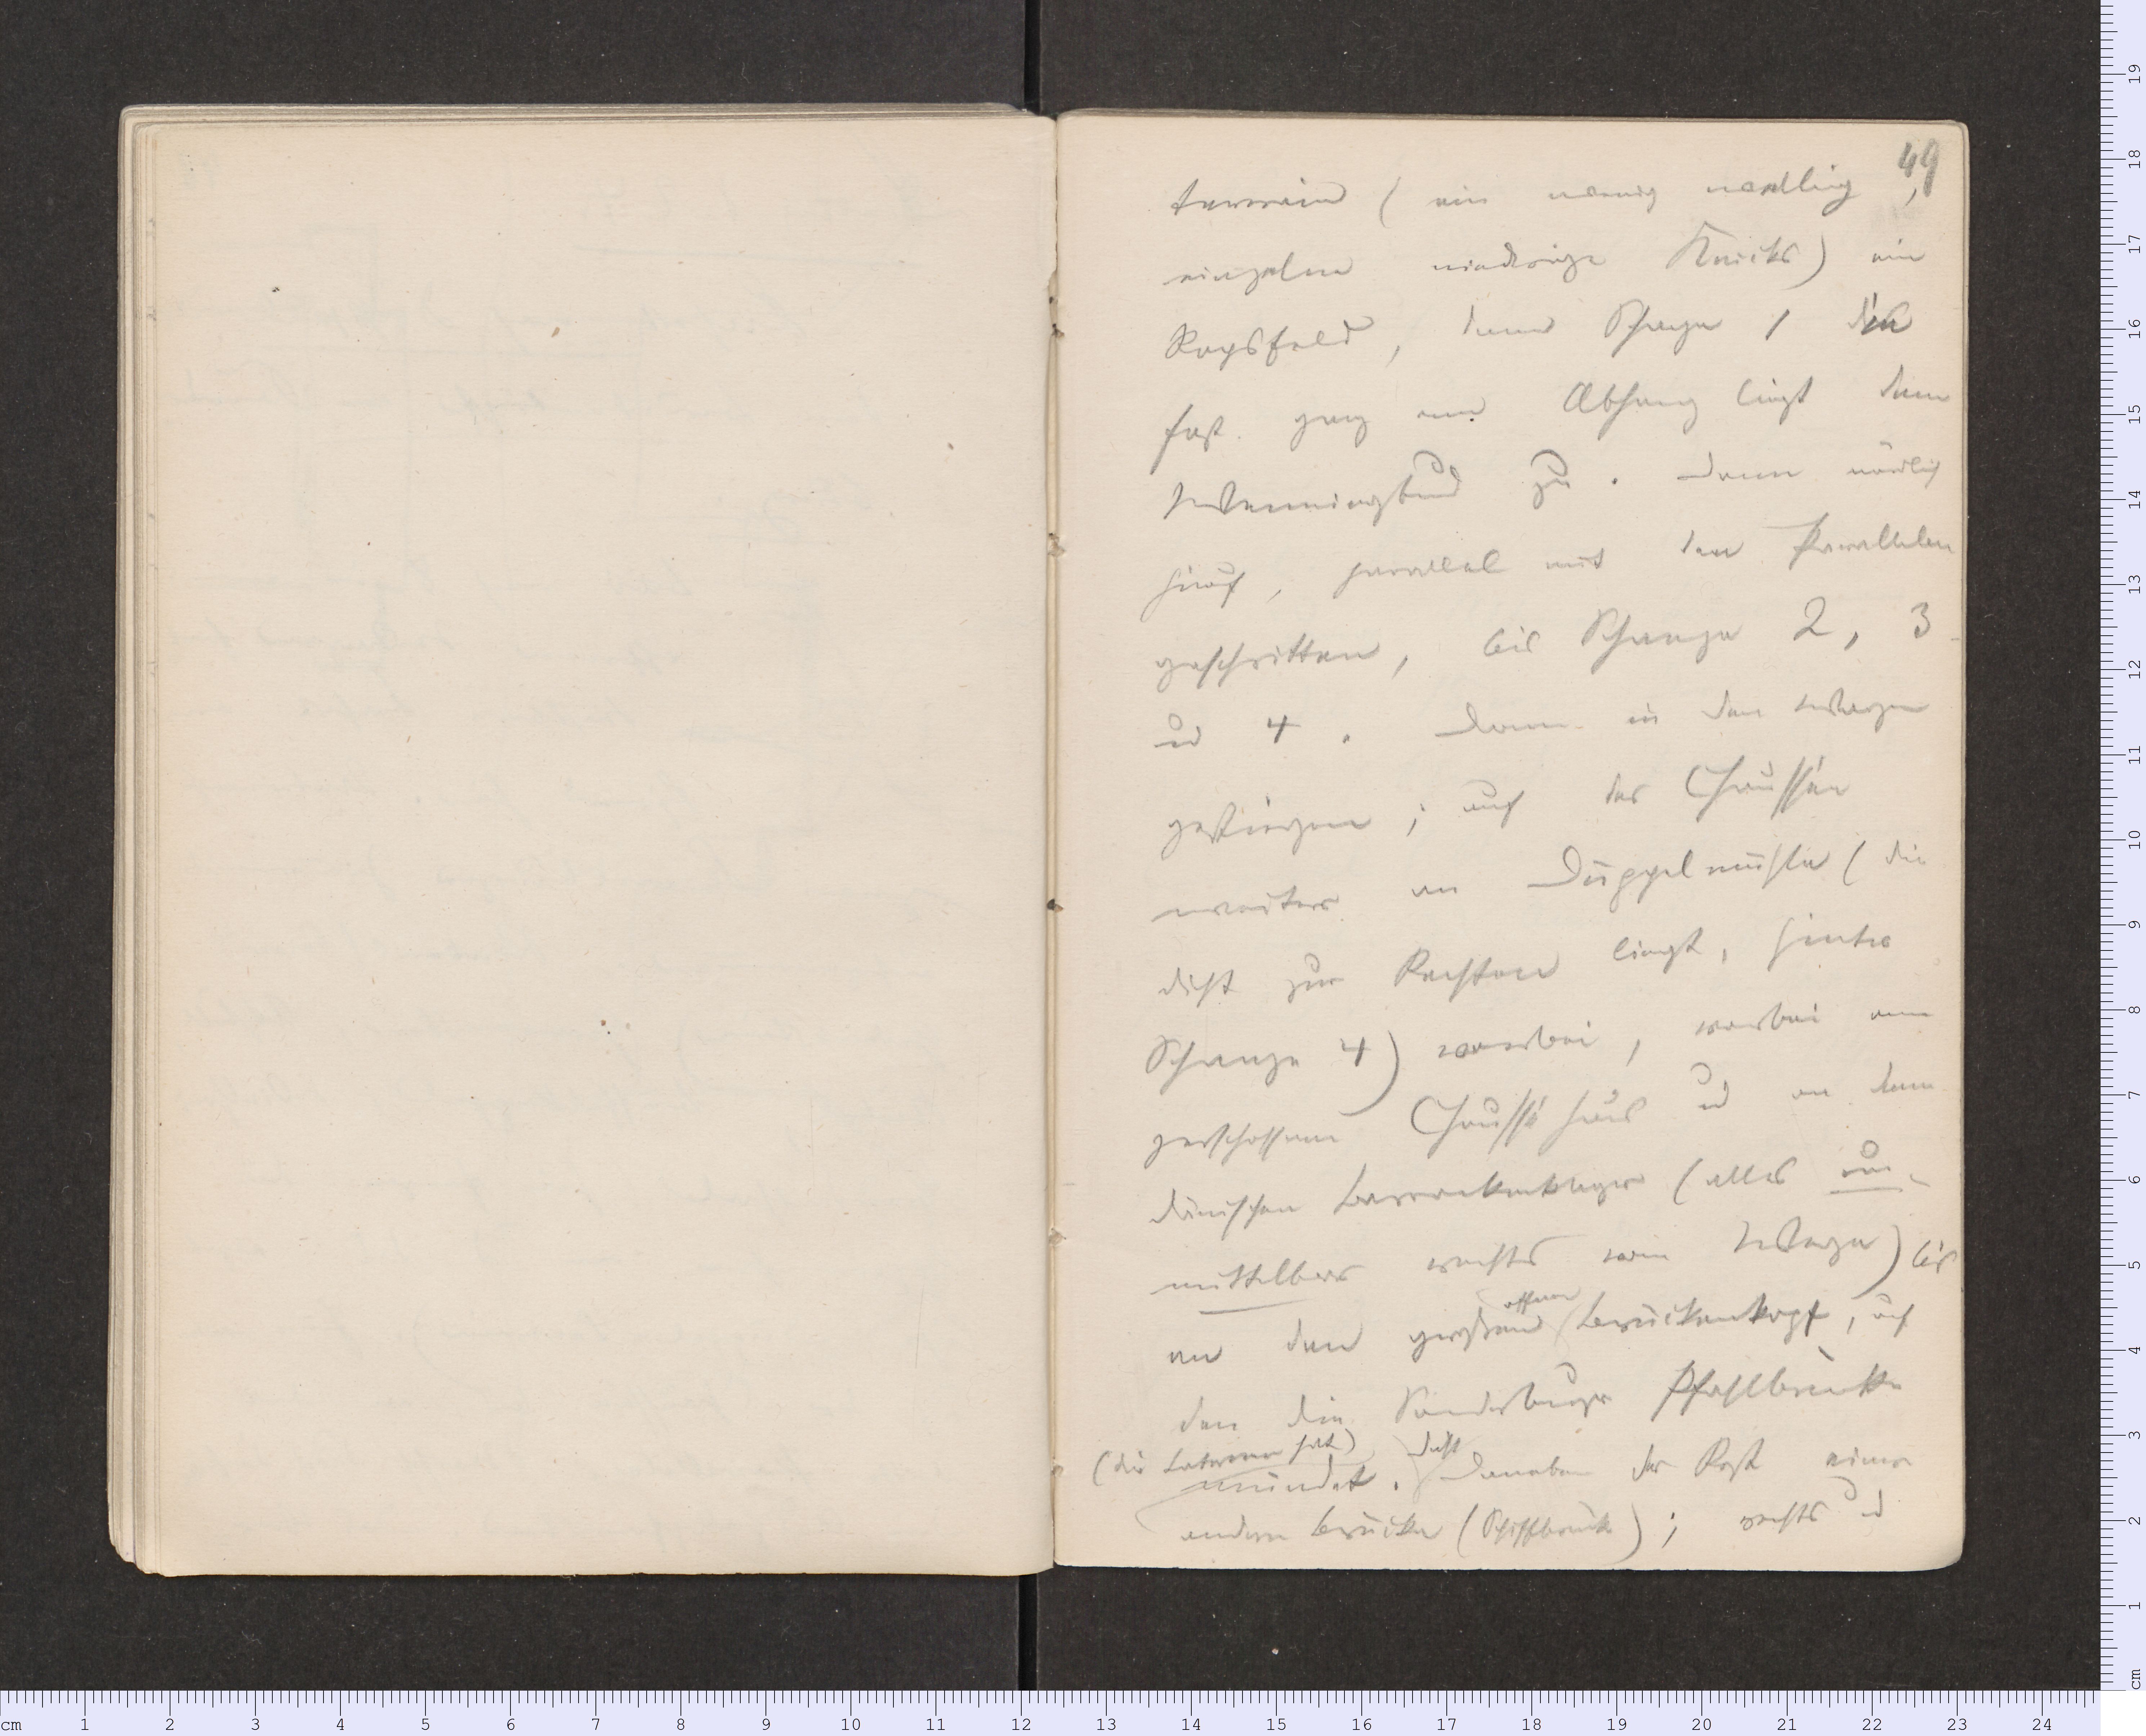 49
terrain (ein wenig wellig,
einzelne niedrige Knicks) ein
Rapsfeld, dann Schanze 1 die
fast ganz am Abhang liegt dem
Wenningbund zu. Dann nördlich
hinauf, parallel mit den Parallelen
geschritten, bis Schanze 2, 3
und 4. Dann in den Wagen
gestiegen; auf der Chaussée
weiter an Düppelmühle (die
dicht zur Rechten liegt, hinter
Schanze 4) vorbei, vorbei am
zerschossenen Chausséehaus und an dem
dänischen Barrackenlager (alles un-
mittelbar rechts vom Wege) bis
offnen
an den großen Brückenkopf, auf
den die Sonderburger Pfahlbrücke
(die Laternen hat) dicht
mündet. Daneben der Rest einer
andern Brücke (Schiffbrücke); rechts und